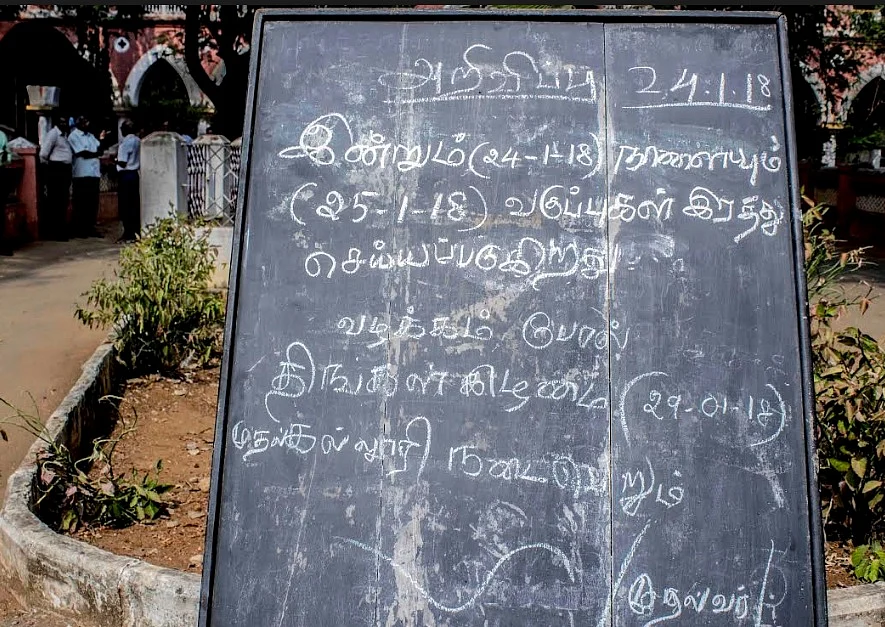 அறிவிப்பு 24.1.18
இன்றும் (24-1-18) நாளையும்
(25-1-18) வகுப்புகள் இரத்து
செய்யப்படுகிறது.
வழக்கம் போல்
திங்கள் கிழமை (29-01-18)
முதல் கல்லூரி நடைபெறும்
முதல்வர்